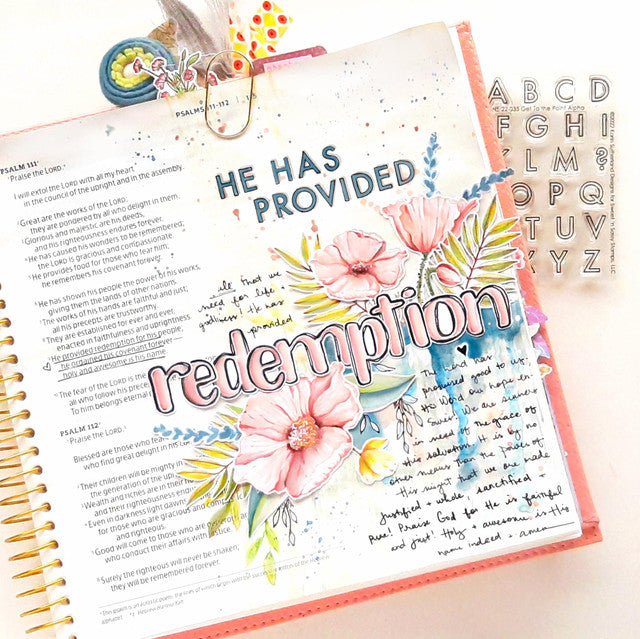 PSALMS 111-112
PSALM 111
Praise the LORD.
I will extol the LORD with all my heart
in the council of the upright and in the assembly.
Great are the works of the LORD;
they are pondered by all who delight in them.
Glorious and majestic are his deeds,
and his righteousness endures forever.
He has caused his wonders to be remembered;
the LORD is gracious and compassionate.
He provides food for those who fear him;
he remembers his covenant forever.
He has shown his people the power of his works,
giving them the lands of other nations.
The works of his hands are faithful and just;
all his precepts are trustworthy.
They are established for ever and ever,
enacted in faithfulness and uprightness.
He provided redemption for his people;
he ordained his covenant forever—
holy and awesome is his name.
The fear of the LORD is the
all who follow his precepts
To him belongs eternal
PSALM 112
Praise the LORD.
Blessed are those who fear
who find great delight in his
Their children will be mighty in
the generation of the up
Wealth and riches are in their
and their righteousness
Even in darkness light dawns
for those who are gracious and
and righteous.
Good will come to those who are
who conduct their affairs with justice.
Surely the righteous will never be shaken;
they will be remembered forever.
HE HAS
PROVIDED
all that we
need for life +
godliness! He has
provided
redemption
The Lord has
promised good to us,
His Word our hope en-
Sures. We are sinners
in need of the grace of
this salvation. It is by
other means than the power of
this might that we are made
justified + whole, sanctified +
Pure! Praise God for He is faithful
and just! Holy + awesome is His
name indeed + amen
A B C D
F G H I
K L M &
O P Q
T U V
X Y Z
Get To the Point Alpha